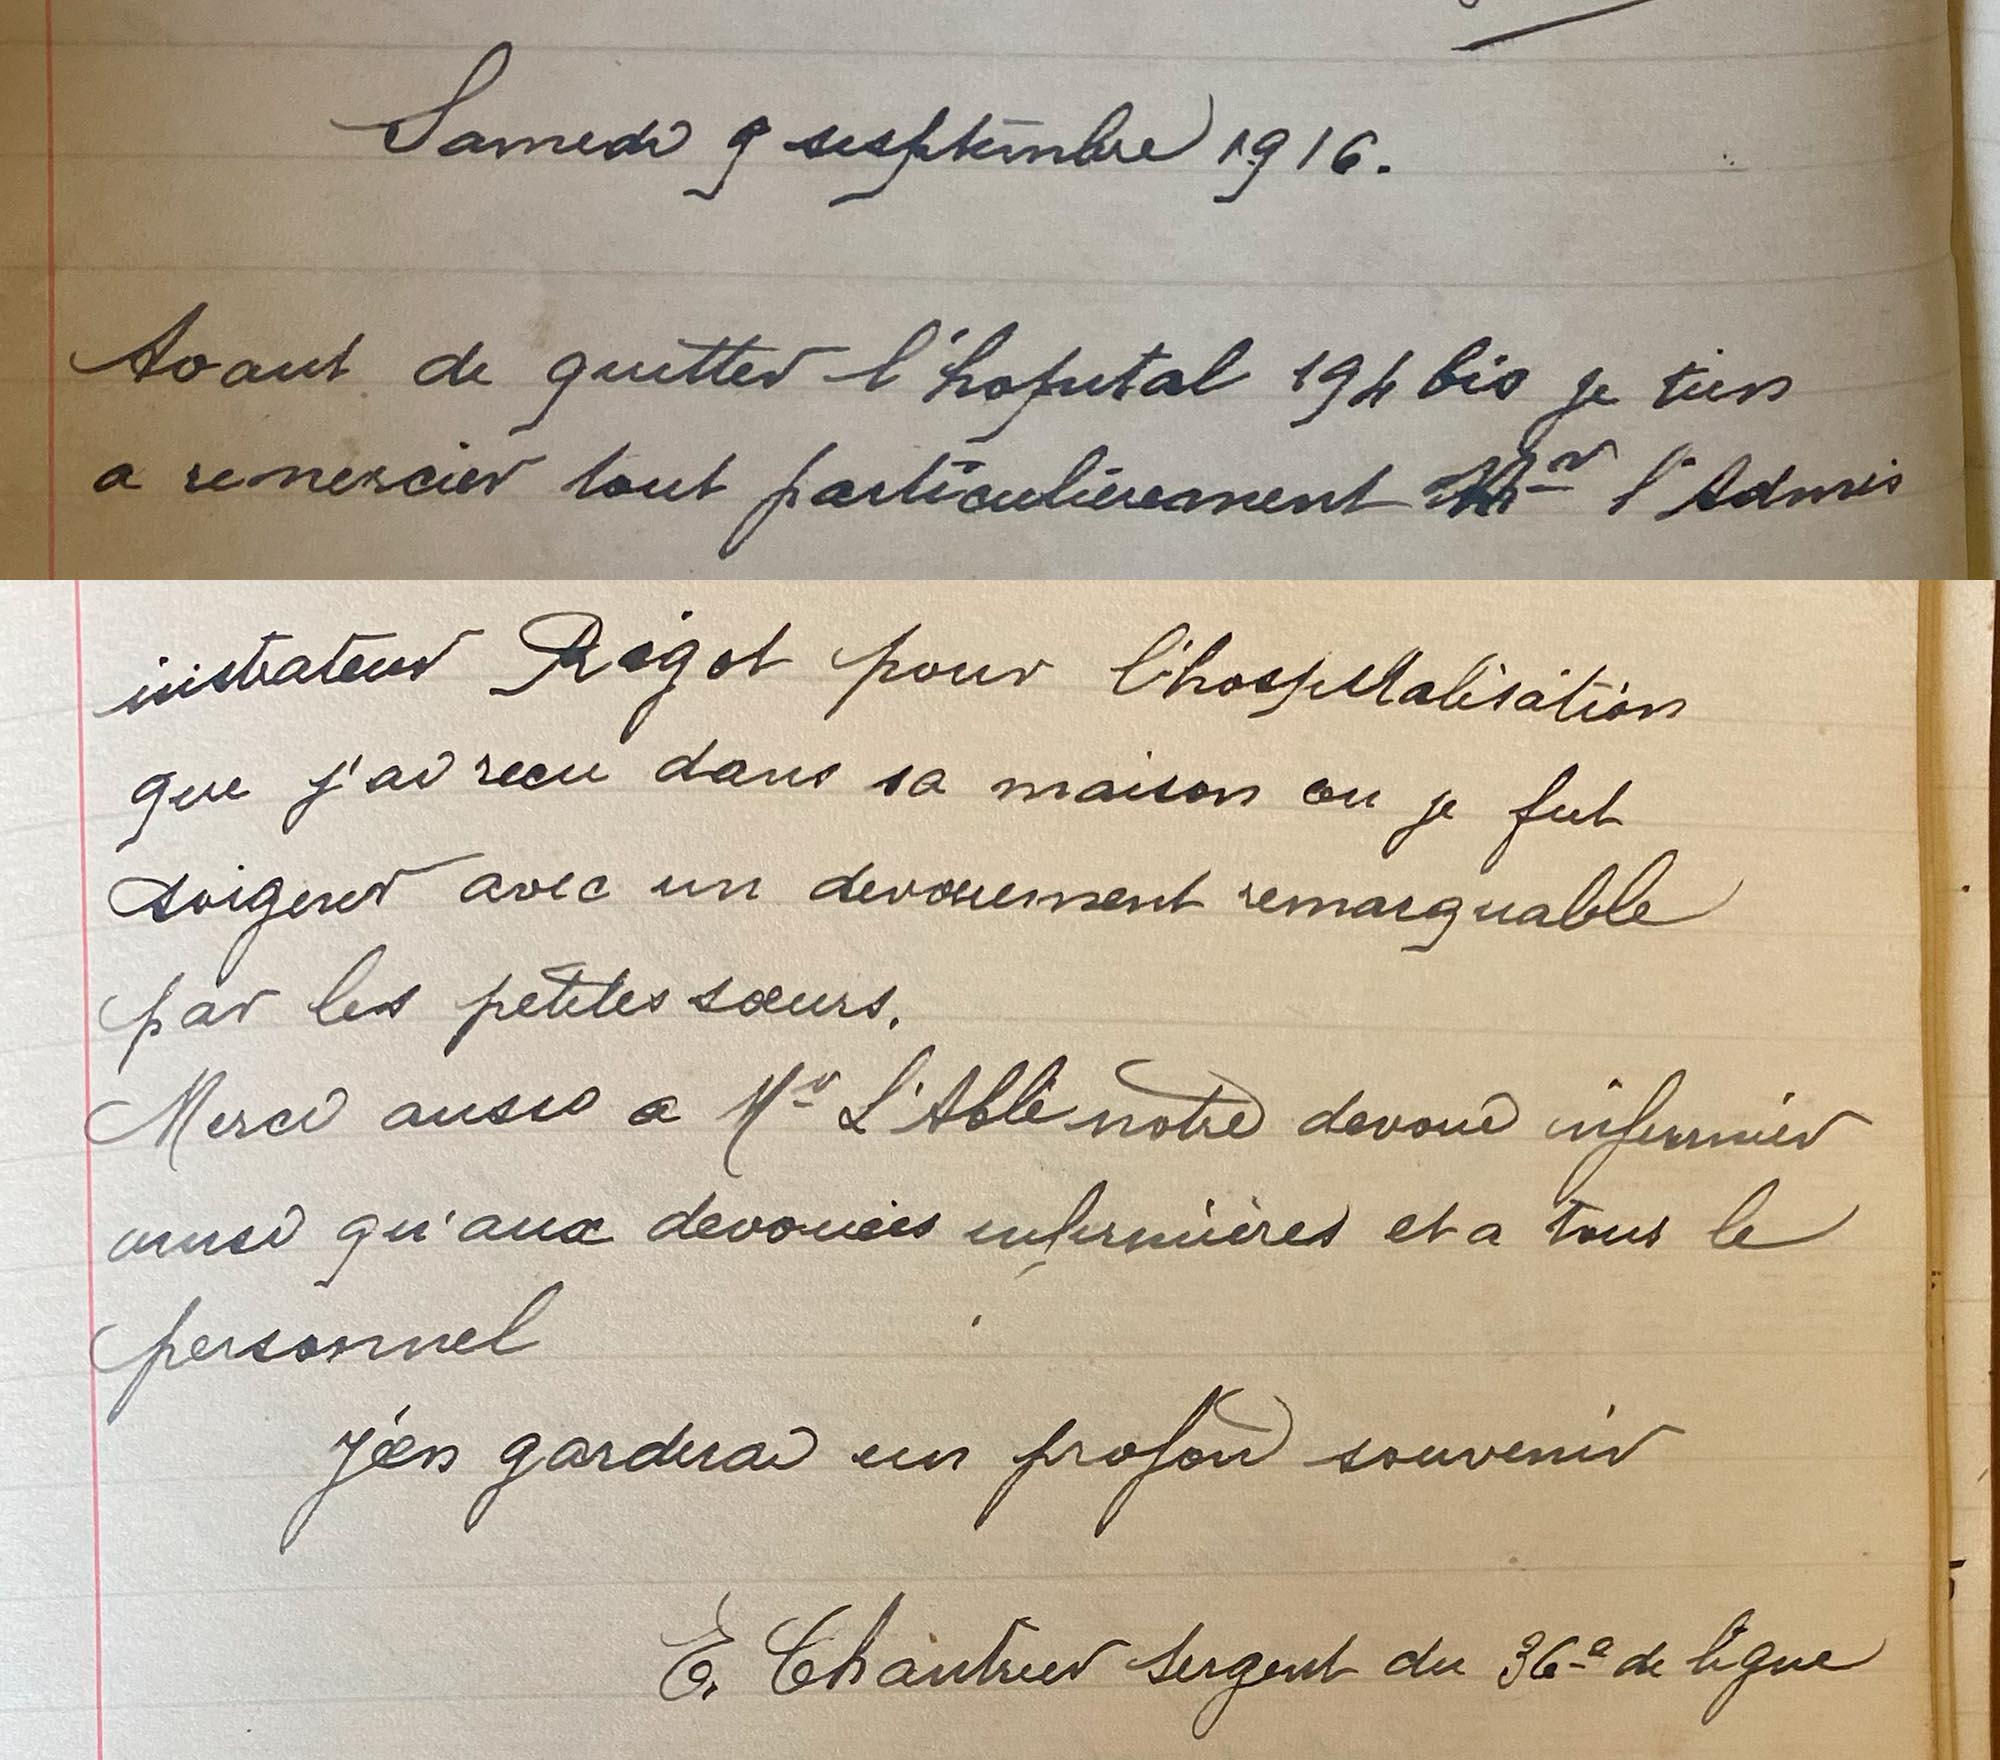 Samedi 9 sesptembre 1916.
Avant de quitter l'hopital 194 bis je tien
a remercier tout particulièreament Mr l'Admis
inistrateur Rigot pour l'hospitalisation
que j'ai recu dans sa maison ou je fut
soigner avec un devouement remarquable
par les petites sœurs.
Merci aussi a Mr L'Abbé notre devoué infirmier
ainsi qu'aux devouées infirmières et a tous le
personnel
J'en garderai un profond souvenir
E. Chantrier Sergent du 36e de ligne